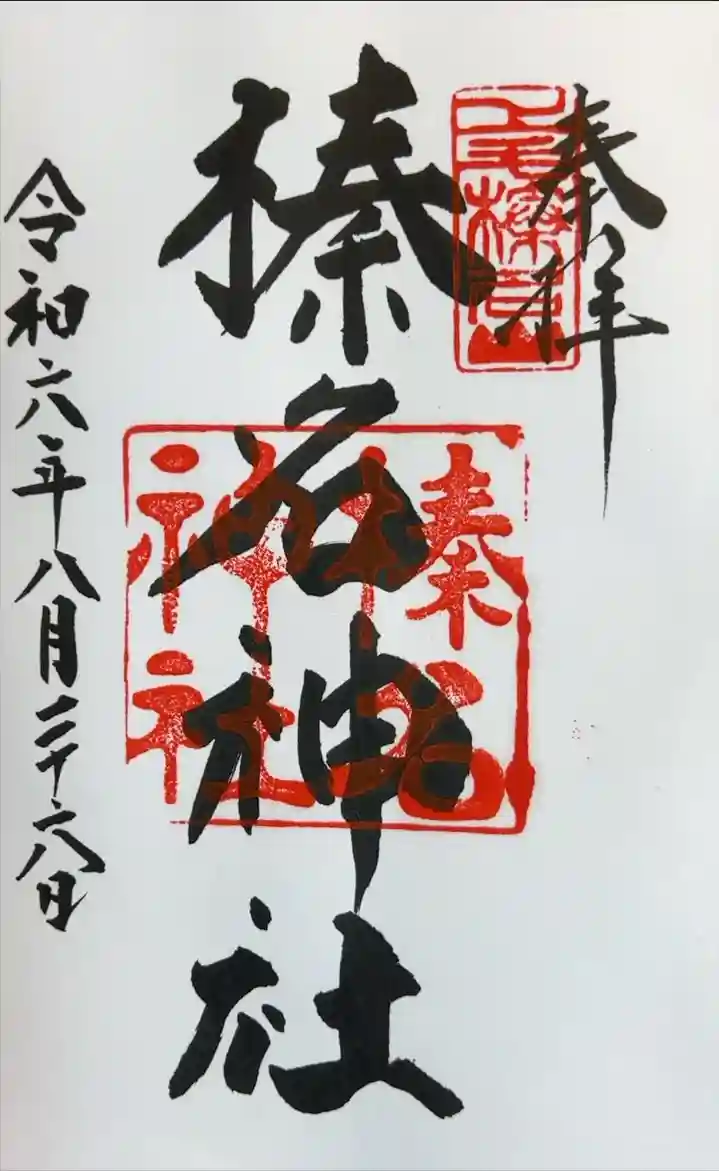 奉拝
上毛榛名山
榛名神社
榛名神社
令和六年八月二十六日